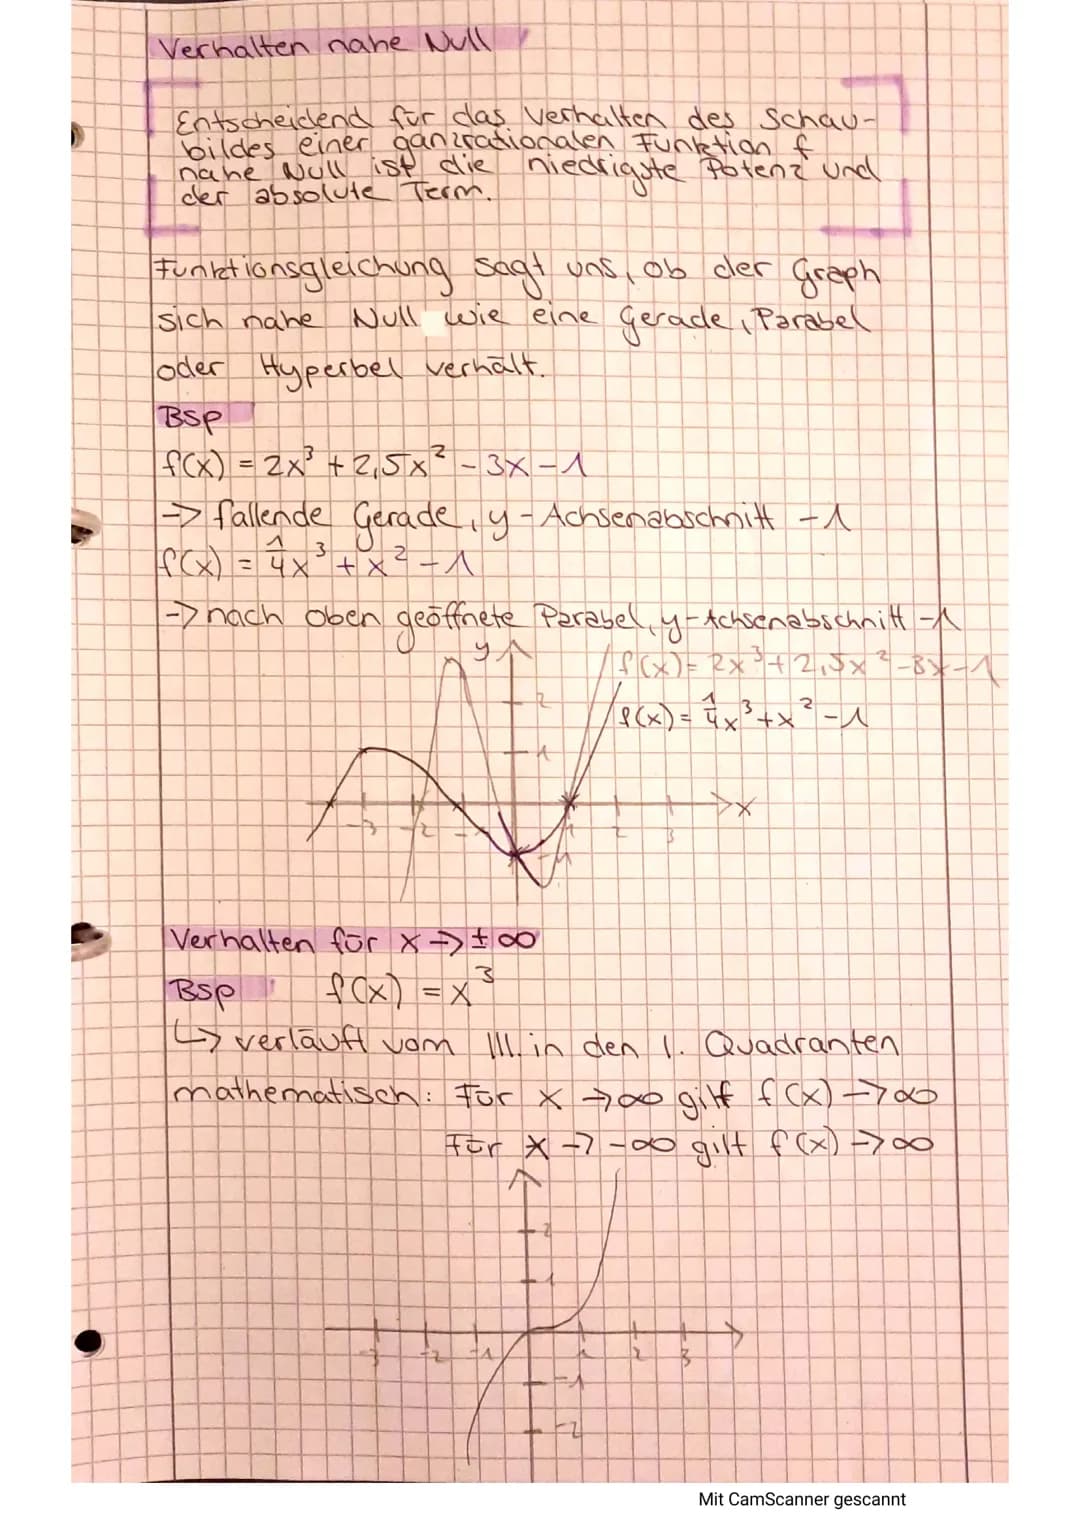 Verhalten nahe Null
Entscheidend für das Verhalten des Schau-
bildes einer ganzrationalen Funktion f
nahe Null ist die niedrigste Potenz und
der absolute Term.
Funktionsgleichung sagt uns, ob der Graph
sich nahe Null wie eine Gerade, Parabel
oder Hyperbel verhält.
Bsp
f(x) = 2x³ + 2,5x² - 3x - 1
-> fallende Gerade, y-Achsenabschnitt -1
f(x) = 1/4x³ + x² - 1
-> nach oben geöffnete Parabel, y-Achsenabschnitt -1
y
f(x) = 2x³ + 2,5x² - 3x - 1
2
f(x) = 1/4x³ + x² - 1
1
x
-3 -2 - 1 2 3
-1
Verhalten für x -> ± ∞
Bsp f(x) = x³
↳ verläuft vom III. in den I. Quadranten
mathematisch: Für x -> ∞ gilt f(x) -> ∞
Für x -> -∞ gilt f(x) -> ∞
2
1
-3 -2 -1 1 2 3
-1
-2
Mit CamScanner gescannt